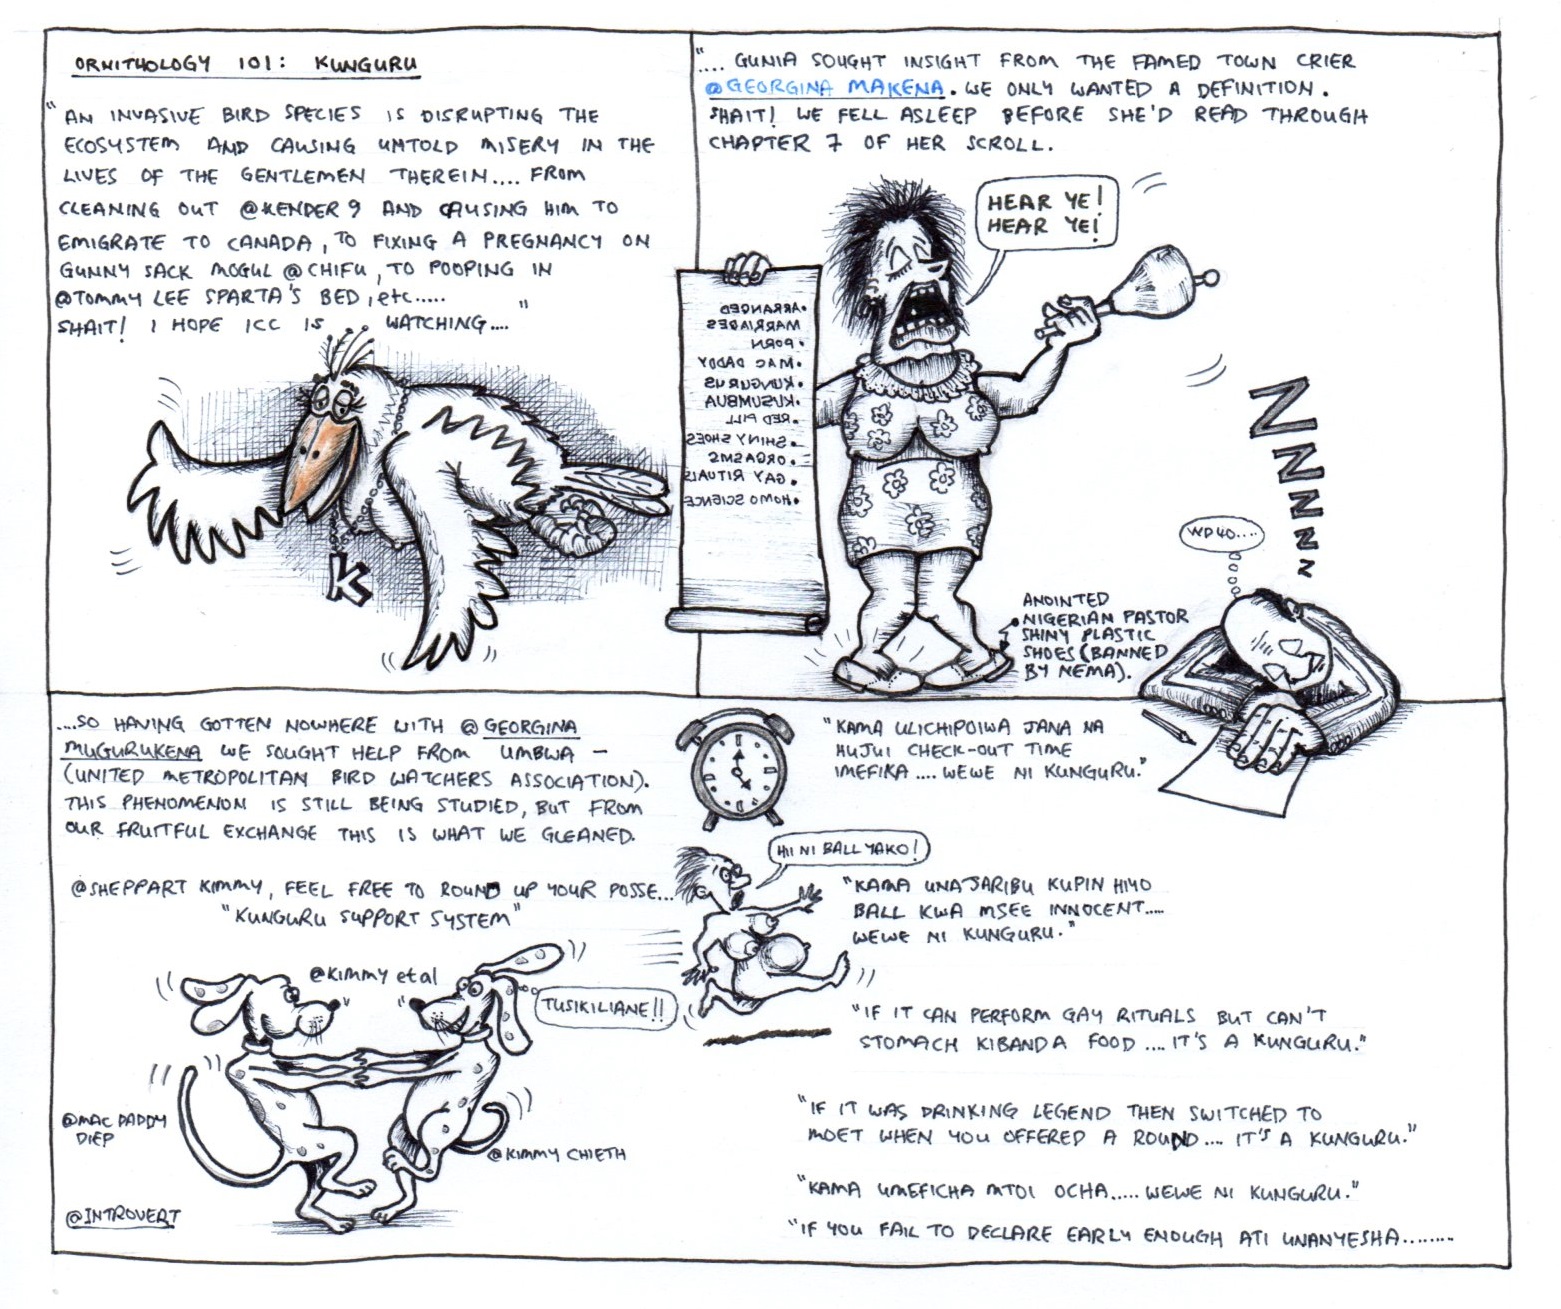 ORNITHOLOGY 101: KUNGURU
"AN INVASIVE BIRD SPECIES IS DISRUPTING THE
ECOSYSTEM AND CAUSING UNTOLD MISERY IN THE
LIVES OF THE GENTLEMEN THEREIN.... FROM
CLEANING OUT @KENDER 9 AND CAUSING HIM TO
EMIGRATE TO CANADA, TO FIXING A PREGNANCY ON
GUNNY SACK MOGUL @CHIFU, TO POOPING IN
@TOMMY LEE SPARTA'S BED, etc..... "
SHAIT! I HOPE ICC IS WATCHING...."
K
".... GUNIA SOUGHT INSIGHT FROM THE FAMED TOWN CRIER
@GEORGINA MAKENA. WE ONLY WANTED A DEFINITION.
SHAIT! WE FELL ASLEEP BEFORE SHE'D READ THROUGH
CHAPTER 7 OF HER SCROLL.
HEAR YE!
HEAR YE!
• ARRANGED
MARRIAGES
• PORN
• MAC DADDY
• KUNGURUS
• KUSUMBUA
• RED PILL
• SHINY SHOES
• ORGASMS
• GAY RITUALS
• HOMO SCIENCE
NNNNNNN
WD40....
ANOINTED
• NIGERIAN PASTOR
SHINY PLASTIC
SHOES (BANNED
BY NEMA).
....SO HAVING GOTTEN NOWHERE WITH @ GEORGINA
MUGURUKENA WE SOUGHT HELP FROM UMBWA –
(UNITED METROPOLITAN BIRD WATCHERS ASSOCIATION).
THIS PHENOMENON IS STILL BEING STUDIED, BUT FROM
OUR FRUITFUL EXCHANGE THIS IS WHAT WE GLEANED.
@SHEPPART KIMMY, FEEL FREE TO ROUND UP YOUR POSSE...
"KUNGURU SUPPORT SYSTEM"
@KIMMY et al
TUSIKILIANE!!
@MAC DADDY
DIEP
@KIMMY CHIETH
@INTROVERT
"KAMA ULICHIPOIWA JANA NA
HUJUI CHECK-OUT TIME
IMEFIKA .... WEWE NI KUNGURU."
HII NI BALL YAKO!
"KAMA UNAJARIBU KUPIN HIYO
BALL KWA MSEE INNOCENT.....
WEWE NI KUNGURU."
"IF IT CAN PERFORM GAY RITUALS BUT CAN'T
STOMACH KIBANDA FOOD .... IT'S A KUNGURU."
"IF IT WAS DRINKING LEGEND THEN SWITCHED TO
MOET WHEN YOU OFFERED A ROUND .... IT'S A KUNGURU."
"KAMA UMEFICHA MTOI OCHA..... WEWE NI KUNGURU."
"IF YOU FAIL TO DECLARE EARLY ENOUGH ATI UNANYESHA........